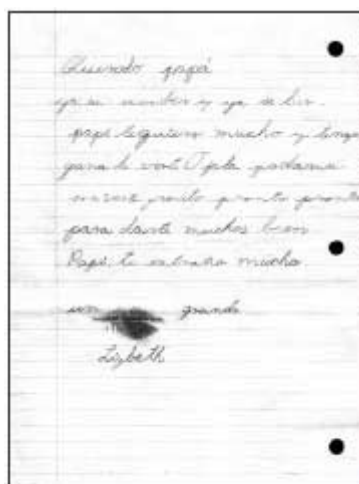 Querido papá
ya se escribir y ya se leer.
papi te quiero mucho y tengo
gana de verte Ojala podamos
pronto pronto pronto
para darte muchos besos
Papi te extraño mucho.
un grande
Lizbeth